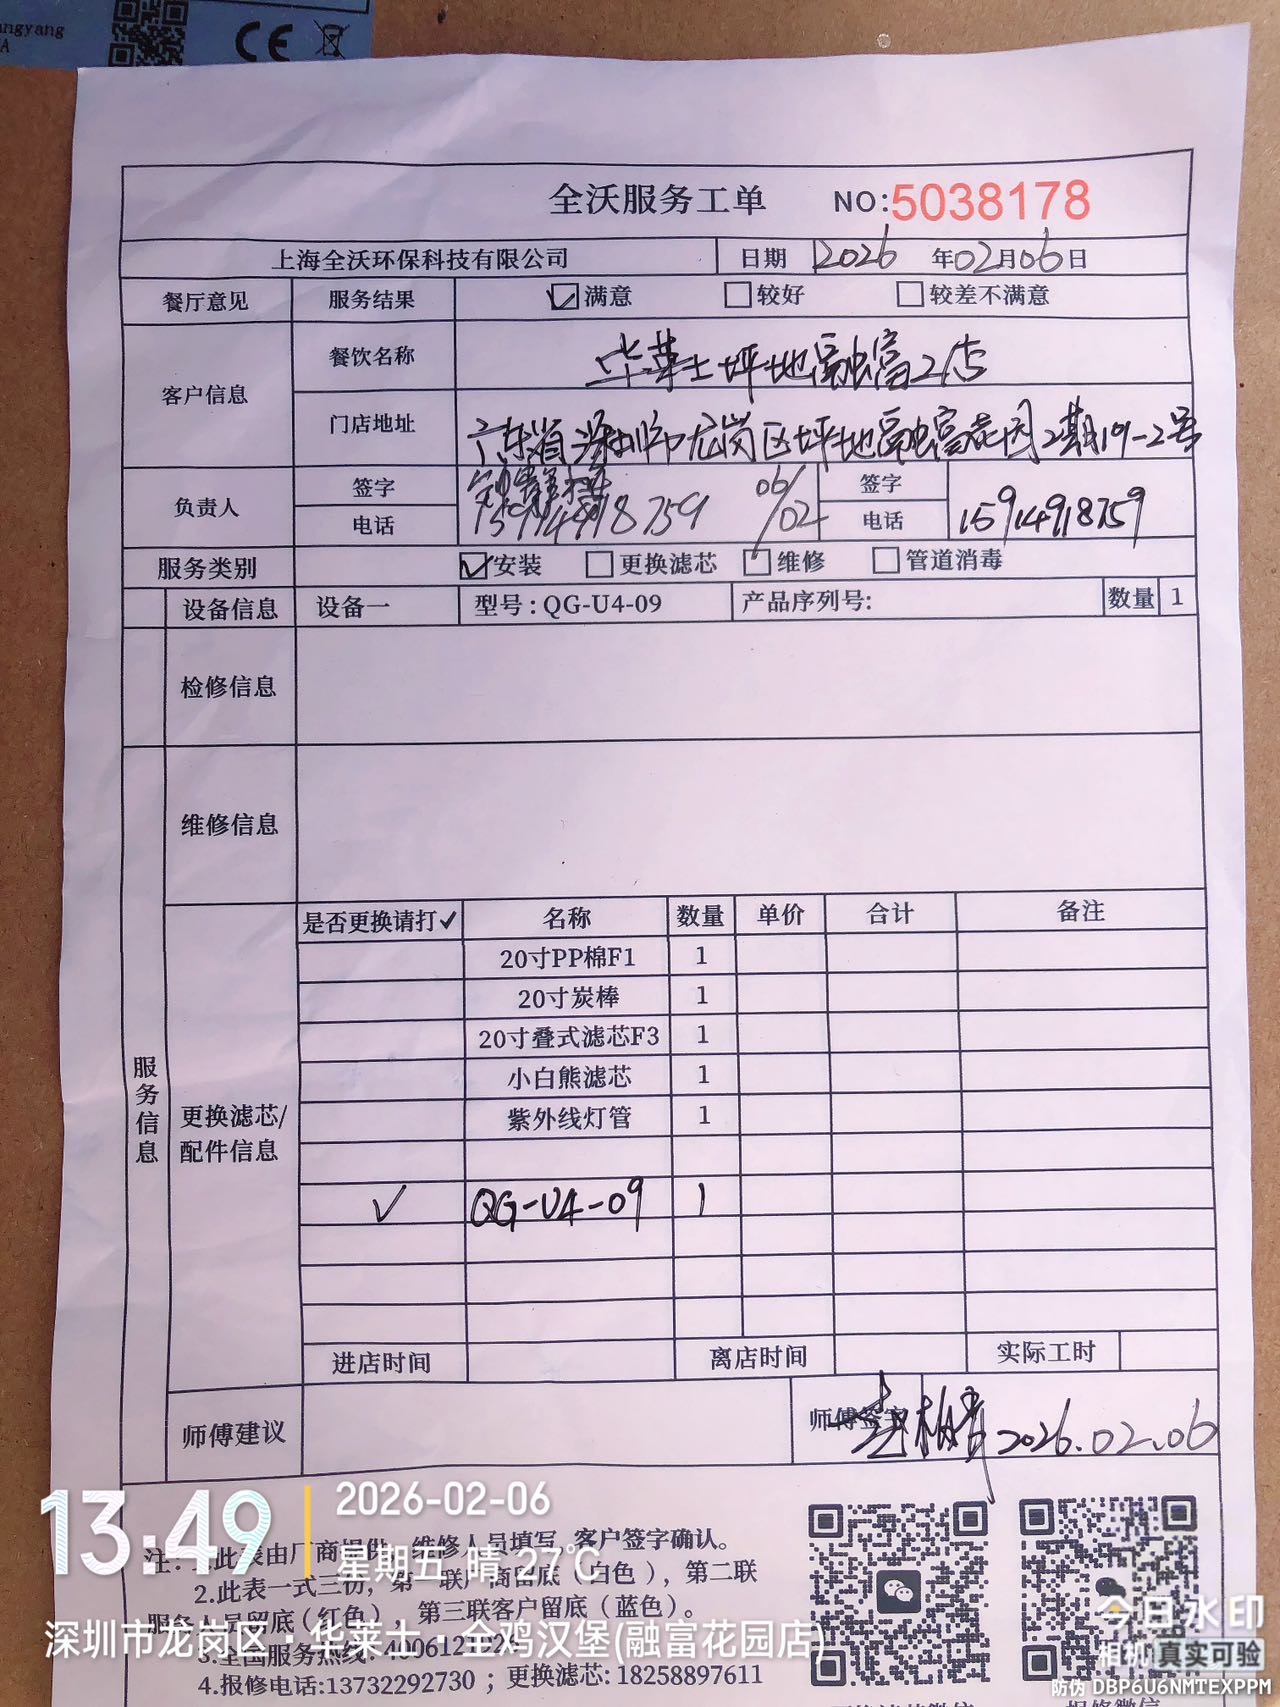 angyang
A
CE
全沃服务工单 NO:5038178
上海全沃环保科技有限公司 日期 2026 年02月06日
餐厅意见 服务结果 ☑满意 □较好 □较差不满意
客户信息 餐饮名称 华莱士坪地融富2店
门店地址 广东省深圳市龙岗区坪地融富花园2期101-2号
负责人 签字 06/02 签字
电话 15914918759 电话 15914918759
服务类别 ☑安装 □更换滤芯 □维修 □管道消毒
设备信息 设备一 型号:QG-U4-09 产品序列号: 数量 1
检修信息
维修信息
服务信息
更换滤芯/
配件信息
是否更换请打✓ 名称 数量 单价 合计 备注
20寸PP棉F1 1
20寸炭棒 1
20寸叠式滤芯F3 1
小白熊滤芯 1
紫外线灯管 1
✓ QG-U4-09 1
进店时间 离店时间 实际工时
师傅建议 师傅签字 2026.02.06
注:1.此表由厂商提供,维修人员填写,客户签字确认。
2.此表一式三份,第一联厂商留底(白色),第二联
服务人员留底(红色),第三联客户留底(蓝色)。
3.全国服务热线:
4.报修电话:13732292730 ; 更换滤芯: 18258897611
报修微信
13:49
2026-02-06
星期五 晴 27℃
深圳市龙岗区·华莱士·全鸡汉堡(融富花园店)
今日水印
相机 真实可验
防伪 DBP6U6NMTEXPPM